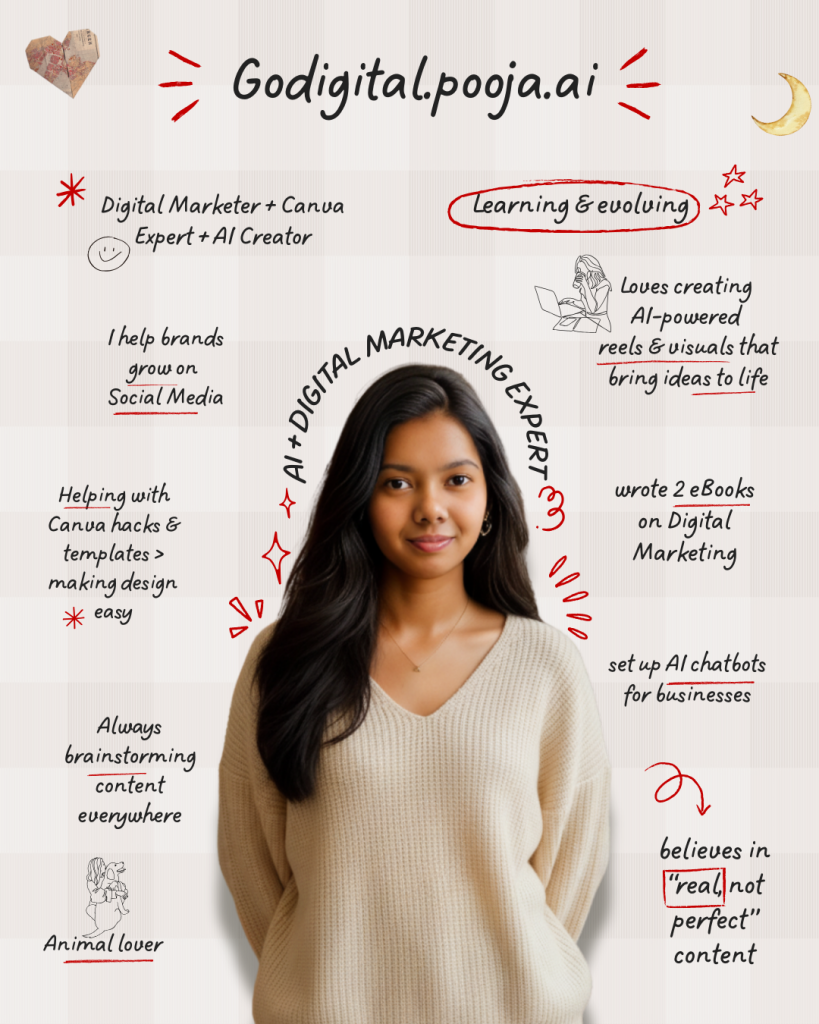 Godigital.pooja.ai
Digital Marketer + Canva
Expert + AI Creator
Learning & evolving
Loves creating
AI-powered
reels & visuals that
bring ideas to life
I help brands
grow on
Social Media
AI + DIGITAL MARKETING EXPERT
Helping with
Canva hacks &
templates >
making design
easy
wrote 2 eBooks
on Digital
Marketing
set up AI chatbots
for businesses
Always
brainstorming
content
everywhere
believes in
"real, not
perfect"
content
Animal lover